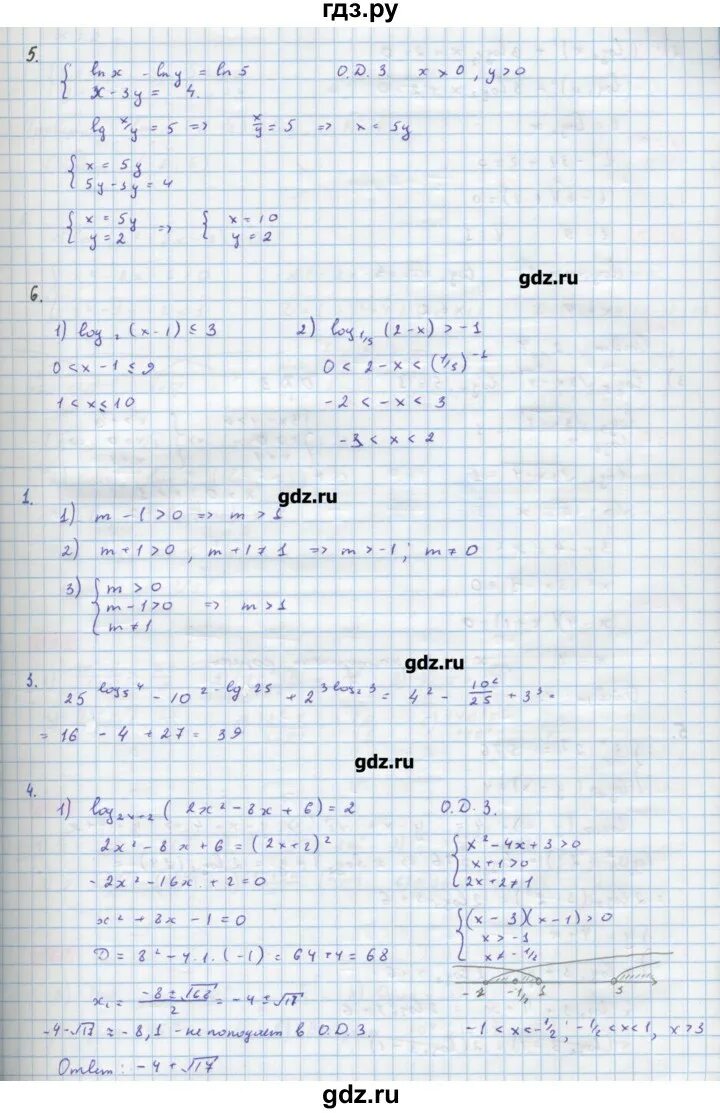 гдз.ру
5.
{ ln x - ln y = ln 5   О.Д.З. x > 0, y > 0
x - 3y = 4.
lg x/y = 5 => x/y = 5 => x = 5y
{ x = 5y
5y - 3y = 4
{ x = 5y => { x = 10
y = 2   y = 2
gdz.ru
6.
1) log (x-1) ≤ 3   2) log_{1/3} (2-x) > -1
0 < x - 1 ≤ 9   0 < 2 - x < (1/3)^{-1}
1 < x ≤ 10   -2 < -x < 3
-3 < x < 2
gdz.ru
1.
1) m - 1 > 0 => m > 1
2) m + 1 > 0, m + 1 ≠ 1 => m > -1; m ≠ 0
3) { m > 0
m - 1 > 0 => m > 1
m ≠ 1
gdz.ru
3.
25^{log_5 4} - 10^{2 - lg 25} + 2^{3 log_2 3} = 4^2 - 10^2/25 + 3^3 =
= 16 - 4 + 27 = 39
gdz.ru
4.
1) log_{2x+2} (2x^2 - 8x + 6) = 2   О.Д.З.
2x^2 - 8x + 6 = (2x+2)^2   { x^2 - 4x + 3 > 0
x + 1 > 0
-2x^2 - 16x + 2 = 0   2x + 2 ≠ 1
x^2 + 8x - 1 = 0   { (x - 3)(x - 1) > 0
x > -1
D = 8^2 - 4·1·(-1) = 64 + 4 = 68   x ≠ -1/2
x_1 = (-8 ± √68)/2 = -4 ± √17   -1 -1/2 1 3
-4-√17 ≈ -8,1 - не попадает в О.Д.З.   -1 < x < -1/2; -1/2 < x < 1, x > 3
Ответ: -4 + √17
gdz.ru